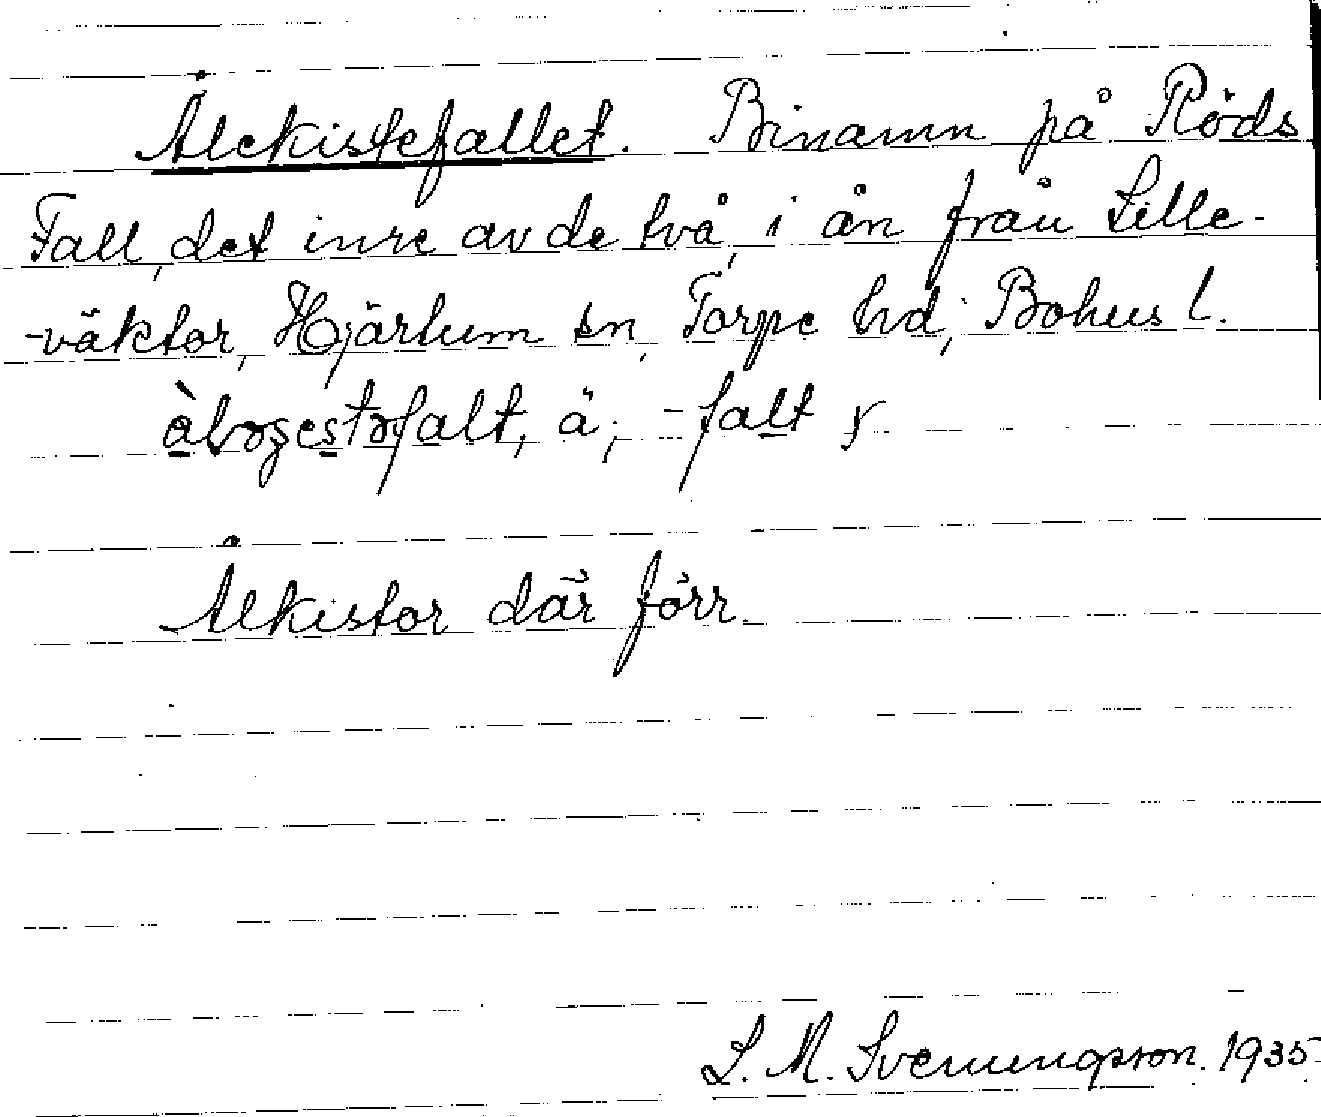 Ålekistefallet. Binamn på Röds
Fall, det inre av de två, i ån från Lille-
-väktor, Hjärtum sn, Torpe hd, Bohus l.
falt, ä, -falt
Ålkistor där förr.
L. M. Svenungsson. 1935